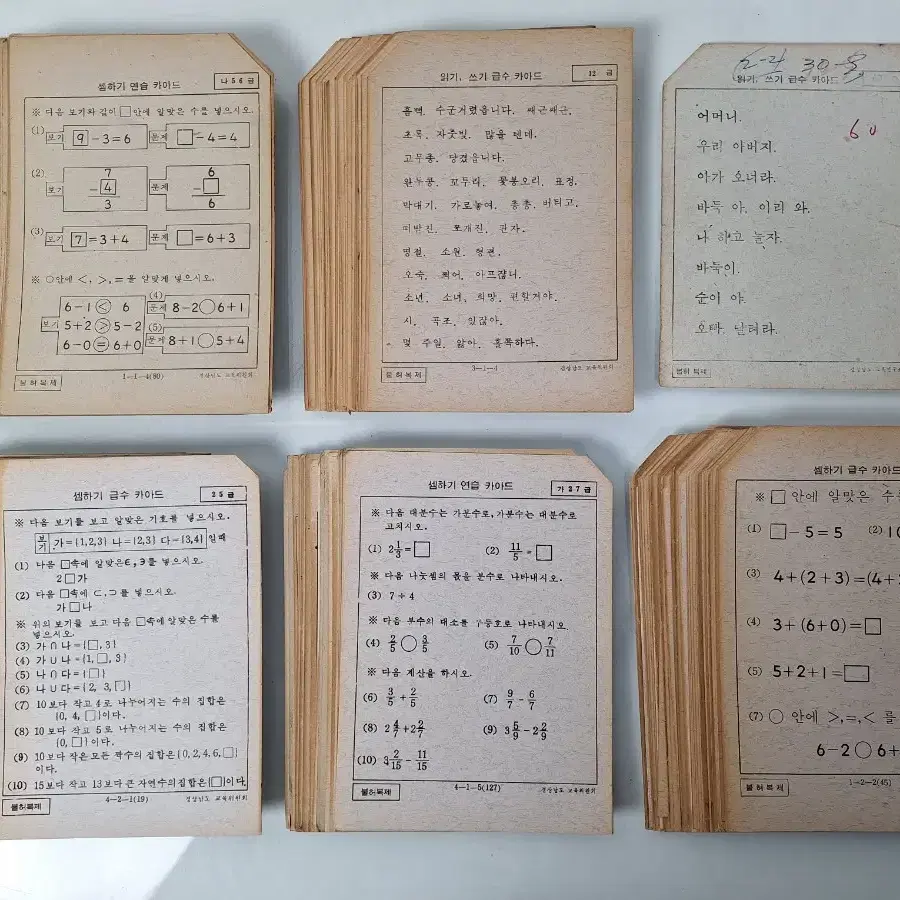 셈하기 연습 카아드
나 5 6 급
※ 다음 보기와 같이 □안에 알맞은 수를 넣으시오.
(1) 보기 9 - 3 = 6 문제 □ - 4 = 4
(2) 보기 7 - 4 3 문제 6 - □ 6
(3) 보기 7 = 3 + 4 문제 □ = 6 + 3
※ ○안에 <, >, = 를 알맞게 넣으시오.
보기 6 - 1 < 6
5 + 2 > 5 - 2
6 - 0 = 6 + 0
(4) 문제 8 - 2 ○ 6 + 1
(5) 문제 8 + 1 ○ 5 + 4
불허복제
1-1-4(80)
경상남도 교육위원회
읽기, 쓰기 급수 카아드
12 급
흠뻑. 수군거렸읍니다. 쌔근쌔근.
초록. 자줏빛. 많을 텐데.
고무총. 당겼읍니다.
완두콩. 꼬투리. 꽃봉오리. 표정.
막대기. 가로놓여. 총총. 버티고.
쪼개진. 판자.
명절. 소원. 형편.
오숙. 쬐어. 아프잖니.
소년. 소녀. 희망. 편할거야.
시. 곡조. 있잖아.
몇 주일. 앓아. 훌쭉하다.
불허복제
3-1-4
경상남도 교육위원회
30
읽기, 쓰기 급수 카아드
60
어머니.
우리 아버지.
아가 오너라.
바둑 아. 이리 와.
나 하고 놀자.
바둑이.
순이 아.
오빠 달려라.
불허복제
셈하기 급수 카아드
2 5 급
※ 다음 보기를 보고 알맞은 기호를 넣으시오.
보기 가={1,2,3} 나={2,3} 다={3,4} 일때
(1) 다음 □속에 알맞은∈,∋를 넣으시오.
2□가
(2) 다음 □속에 ⊂,⊃를 넣으시오.
가□나
※ 위의 보기를 보고 다음 □속에 알맞은 수를
넣으시오.
(3) 가∩나={□, 3}
(4) 가∪나={1, □, 3}
(5) 나∩다={□}
(6) 나∪다={2, 3, □}
(7) 10보다 작고 4로 나누어지는 수의 집합은
{0, 4, □}이다.
(8) 10보다 작고 5로 나누어지는 수의 집합은
{0, □}이다.
(9) 10보다 작은 모든 짝수의 집합은{0, 2, 4, 6, □}
이다.
(10) 15보다 작고 13보다 큰 자연수의 집합은{□}이다.
불허복제
4-2-1(19)
경상남도 교육위원회
셈하기 연습 카아드
가 3 7 급
※ 다음 대분수는 가분수로, 가분수는 대분수로
고치시오.
(1) 2 1/3 = □ (2) 11/5 = □
※ 다음 나눗셈의 몫을 분수로 나타내시오.
(3) 7 ÷ 4
※ 다음 분수의 대소를 부등호로 나타내시오.
(4) 2/5 ○ 3/5 (5) 7/10 ○ 7/11
※ 다음 계산을 하시오.
(6) 3/5 + 2/5 (7) 9/7 - 6/7
(8) 2 4/7 + 2 2/7 (9) 3 5/9 - 2 2/9
(10) 3 2/15 - 11/15
불허복제
4-1-5(127)
경상남도 교육위원회
셈하기 급수 카아드
※ □ 안에 알맞은 수를
(1) □ - 5 = 5 (2) 10
(3) 4 + (2 + 3) = (4 +
(4) 3 + (6 + 0) = □
(5) 5 + 2 + 1 = □
(7) ○ 안에 >, =, < 를
6 - 2 ○ 6 +
불허복제
1-2-2(45)